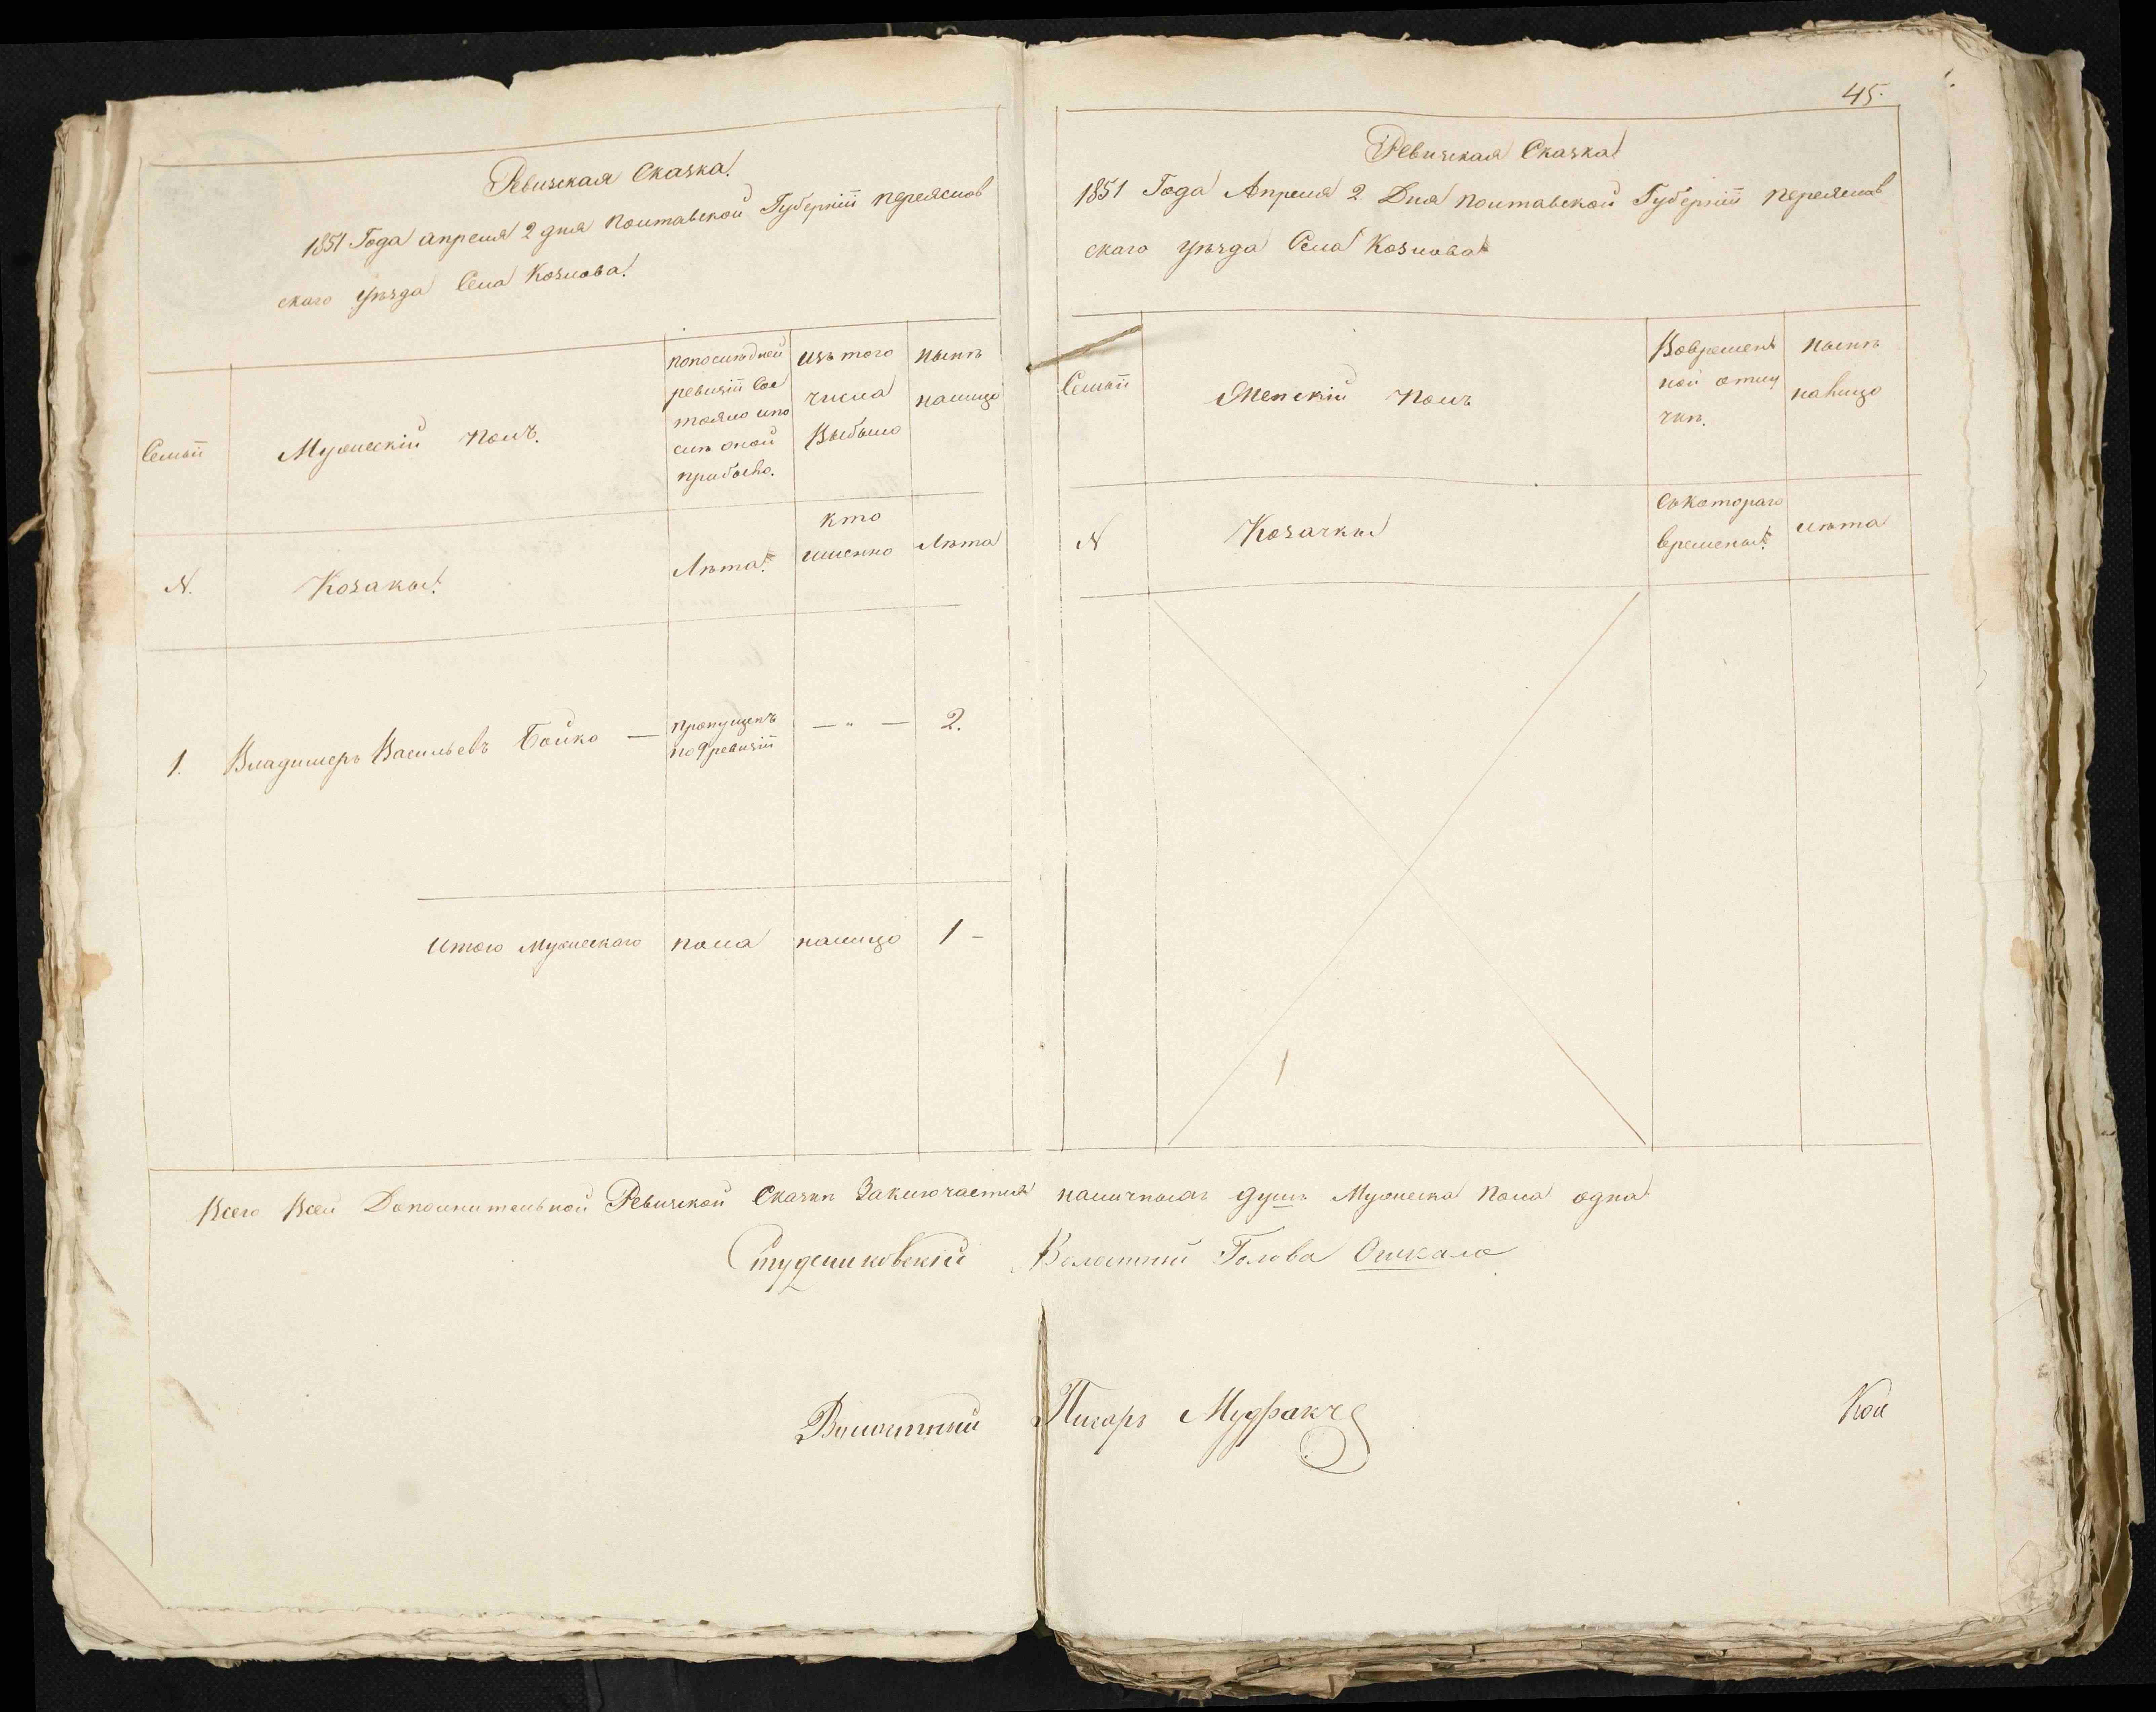 Ревизская Сказка
1851 Года апреля 2 дня Полтавской Губерніи переяслов
скаго уѣзда Села Козлова
Семьи
Мужескій полъ.
попослѣдней
ревизіи Сос
тояло ипо
слѣ оной
прибыло.
изъ того
числа
Выбыло
нынѣ
налицо
N.
Козаки
Лѣта
кто
именно
Лѣта
1. Владимеръ Васильевъ Бойко —
пропущенъ
по 9 ревизіи
— „ —
2.
Итого Мужескаго пола налицо 1 –
45.
Ревизская Сказка
1851 Года Апреля 2 Дня полтавской Губерніи переяслав
скаго уѣзда Села Козлова
Семьи
Женскій полъ
Вовремен
ной отлу
чкѣ.
нынѣ
налицо
N
Козачки
Съкотораго
времены
лѣта
Всего Всей Дополнительной Ревизской Сказкѣ Заключается наличныхъ душъ Мужеска пола одна
Студениковскій Волостный Голова Ошкало
Волостный Писарь
Кол